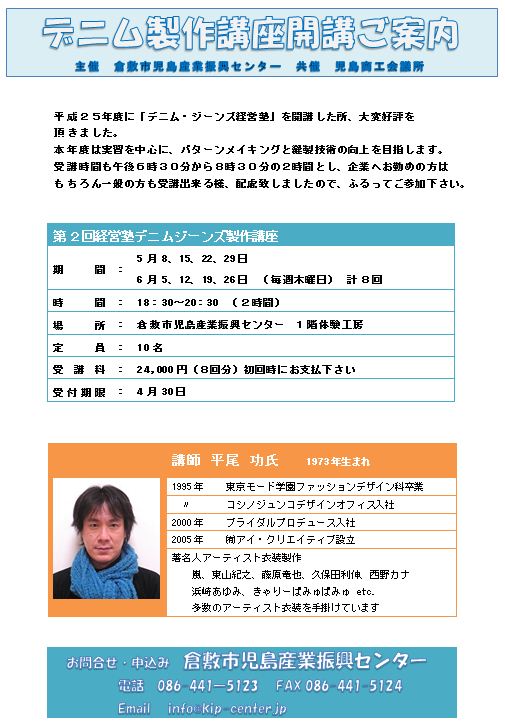 デニム製作講座開講ご案内
主催　倉敷市児島産業振興センター　共催　児島商工会議所
平成２５年度に「デニム・ジーンズ経営塾」を開講した所、大変好評を
頂きました。
本年度は実習を中心に、パターンメイキングと縫製技術の向上を目指します。
受講時間も午後６時３０分から８時３０分の２時間とし、企業へお勤めの方は
もちろん一般の方も受講出来る様、配慮致しましたので、ふるってご参加下さい。
第２回経営塾デニムジーンズ製作講座
期　間　：　５月８、１５、２２、２９日
６月５、１２、１９、２６日　（毎週木曜日）　計８回
時　間　：　18：30～20：30　（２時間）
場　所　：　倉敷市児島産業振興センター　１階体験工房
定　員　：　10名
受講料　：　24,000円（８回分）初回時にお支払下さい
受付期限　：　４月30日
講師　平尾　功氏　1973年生まれ
1995年　東京モード学園ファッションデザイン科卒業
〃　コシノジュンコデザインオフィス入社
2000年　ブライダルプロデュース入社
2005年　㈲アイ・クリエイティブ設立
著名人アーティスト衣装製作
嵐、東山紀之、藤原竜也、久保田利伸、西野カナ
浜崎あゆみ、きゃりーぱみゅぱみゅ etc.
多数のアーティスト衣装を手掛けています
お問合せ・申込み　倉敷市児島産業振興センター
電話　086-441-5123　FAX 086-441-5124
Email　info@kip-center.jp